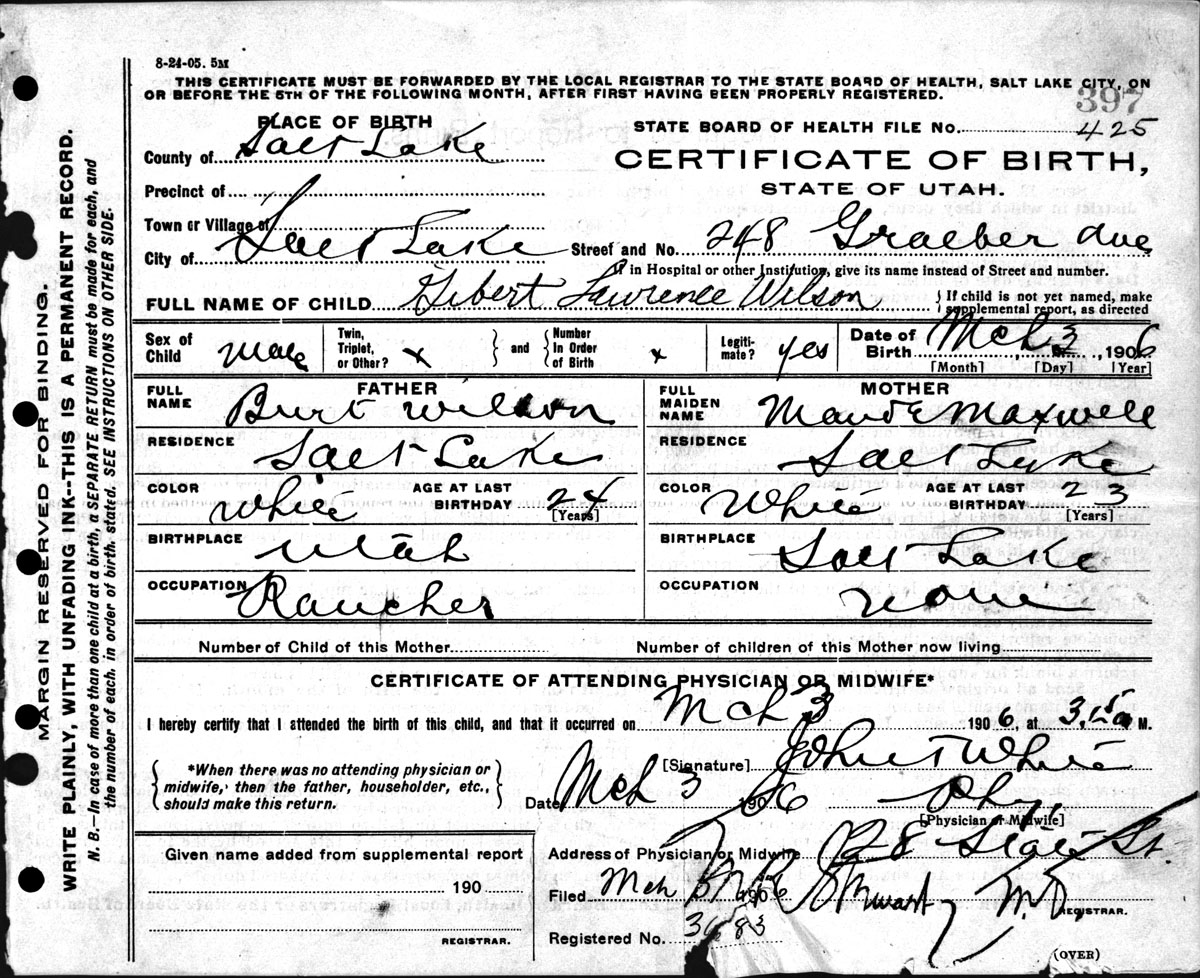 8-24-05. 5M
THIS CERTIFICATE MUST BE FORWARDED BY THE LOCAL REGISTRAR TO THE STATE BOARD OF HEALTH, SALT LAKE CITY, ON
OR BEFORE THE 5TH OF THE FOLLOWING MONTH, AFTER FIRST HAVING BEEN PROPERLY REGISTERED.
397
PLACE OF BIRTH
STATE BOARD OF HEALTH FILE NO. 425
County of Salt Lake
CERTIFICATE OF BIRTH,
STATE OF UTAH.
Precinct of
Town or Village of
City of Salt Lake Street and No. 248 Graeber Ave
If in Hospital or other Institution, give its name instead of Street and number.
FULL NAME OF CHILD Gibert Lawrence Wilson } If child is not yet named, make supplemental report, as directed
Sex of Child Male Twin, Triplet, or Other? x } and { Number In Order of Birth x Legiti-mate? yes Date of Birth Mch 3, 1906
[Month] [Day] [Year]
FATHER MOTHER
FULL NAME Burt Wilson FULL MAIDEN NAME Maude Maxwell
RESIDENCE Salt Lake RESIDENCE Salt Lake
COLOR White AGE AT LAST BIRTHDAY 24 [Years] COLOR White AGE AT LAST BIRTHDAY 23 [Years]
BIRTHPLACE Utah BIRTHPLACE Salt Lake
OCCUPATION Rancher OCCUPATION None
Number of Child of this Mother Number of children of this Mother now living
CERTIFICATE OF ATTENDING PHYSICIAN OR MIDWIFE*
I hereby certify that I attended the birth of this child, and that it occurred on Mch 3 1906, at 3,15 a M.
{ *When there was no attending physician or midwife, then the father, householder, etc., should make this return. }
[Signature] John T White
Date Mch 3 1906 Phy.
[Physician or Midwife]
Address of Physician or Midwife State St.
Given name added from supplemental report
190
REGISTRAR.
Filed Mch 1906 Stewart M.D.
REGISTRAR.
Registered No. 3683
(OVER)
MARGIN RESERVED FOR BINDING.
WRITE PLAINLY, WITH UNFADING INK--THIS IS A PERMANENT RECORD.
N. B.—In case of more than one child at a birth, a SEPARATE RETURN must be made for each, and
the number of each, in order of birth, stated. SEE INSTRUCTIONS ON OTHER SIDE.